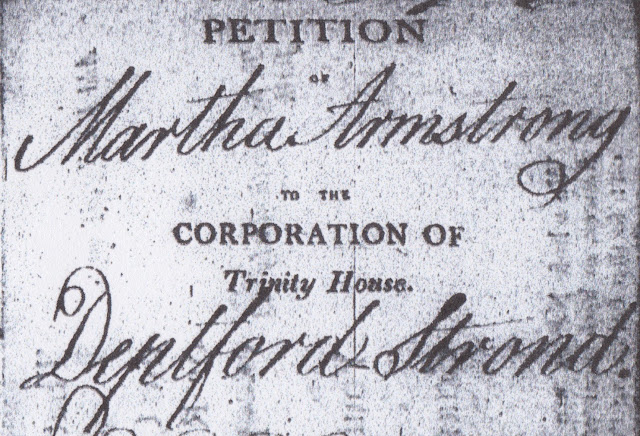 PETITION
OF
Martha Armstrong
TO THE
CORPORATION OF
Trinity House.
Deptford Strond.